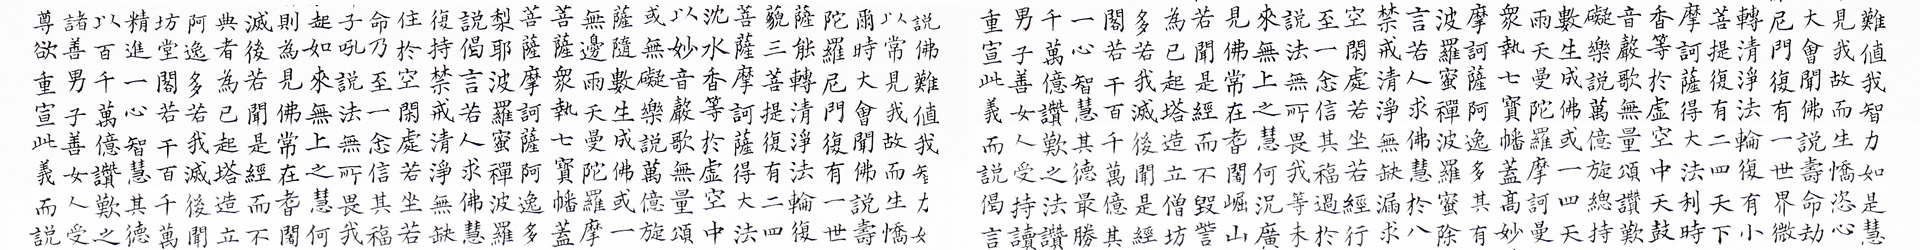 難值我智力如是慧
見我故而生憍恣心
大會聞佛說壽命劫
尼門復有一世界微
轉清淨法輪復有小
菩提復有二四天下
摩訶薩得大法利時
香等於虛空中天鼓
音聲歌無量頌讚歎
礙樂說萬億旋總持
數生成佛或一四天
雨天曼陀羅摩訶曼
衆執七寶幡蓋高妙
摩訶薩阿逸多其有
波羅蜜禪波羅蜜除
言若人求佛慧於八
禁戒清淨無缺漏求
空閑處若坐若經行
至一念信其福過於
說法無所畏我等未
來無上之慧何況廣
見佛常在耆闍崛山
若聞是經而不毀訾
為已起塔造立僧坊
多若我滅後聞是經
閣若干百千萬億其
一心智慧其德最勝
千萬億讚歎之法讚
男子善女人受持讀
重宣此義而說偈言
說佛難值我智力
以常見我故而生憍
爾時大會聞佛說壽
陀羅尼門復有一世
薩能轉清淨法輪復
藐三菩提復有二四
菩薩摩訶薩得大法
沈水香等於虛空中
以妙音聲歌無量頌
或無礙樂說萬億旋
薩隨數生成佛或一
無邊雨天曼陀羅摩
菩薩衆執七寶幡蓋
菩薩摩訶薩阿逸多
梨耶波羅蜜禪波羅
說偈言若人求佛慧
復持禁戒清淨無缺
住於空閑處若坐若
命乃至一念信其福
子吼說法無所畏我
起如來無上之慧何
則為見佛常在耆闍
滅後若聞是經而不
典者為已起塔造立
阿逸多若我滅後聞
坊堂閣若干百千萬
精進一心智慧其德
以百千萬億讚歎之
諸善男子善女人受
尊欲重宣此義而說